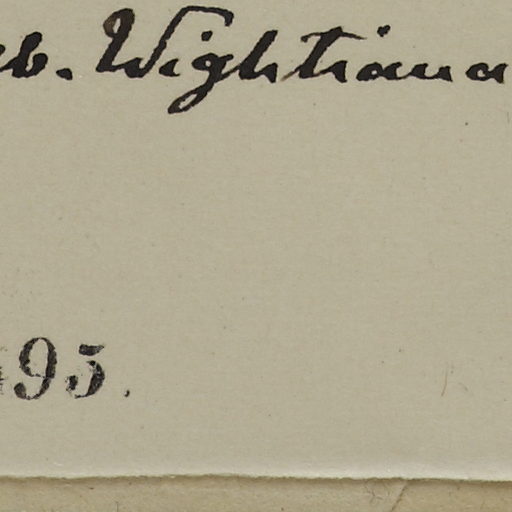 b. Wightiana
95.